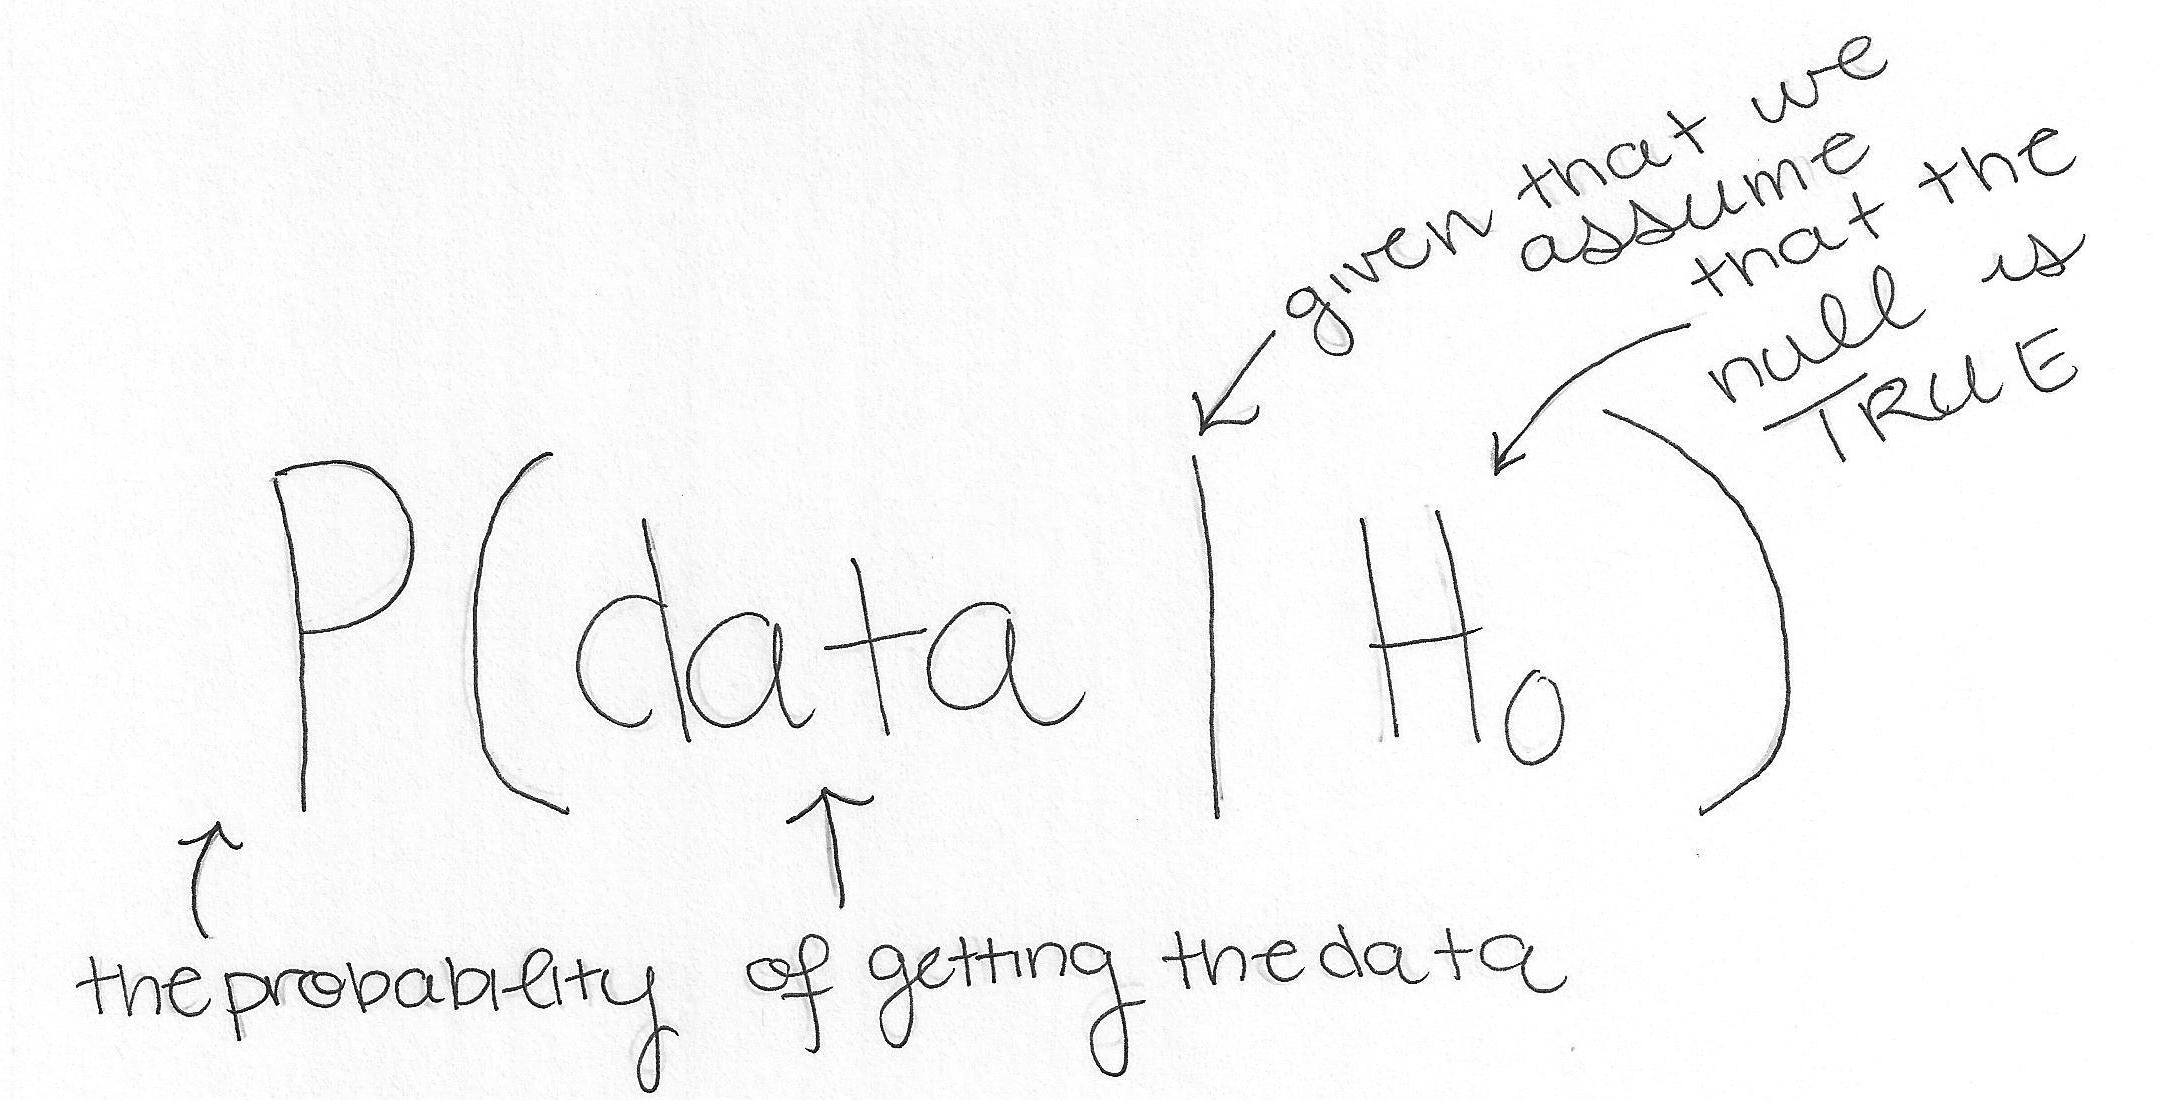 given that we
assume
that the
null is
TRUE
P(data | H₀)
the probability of getting the data